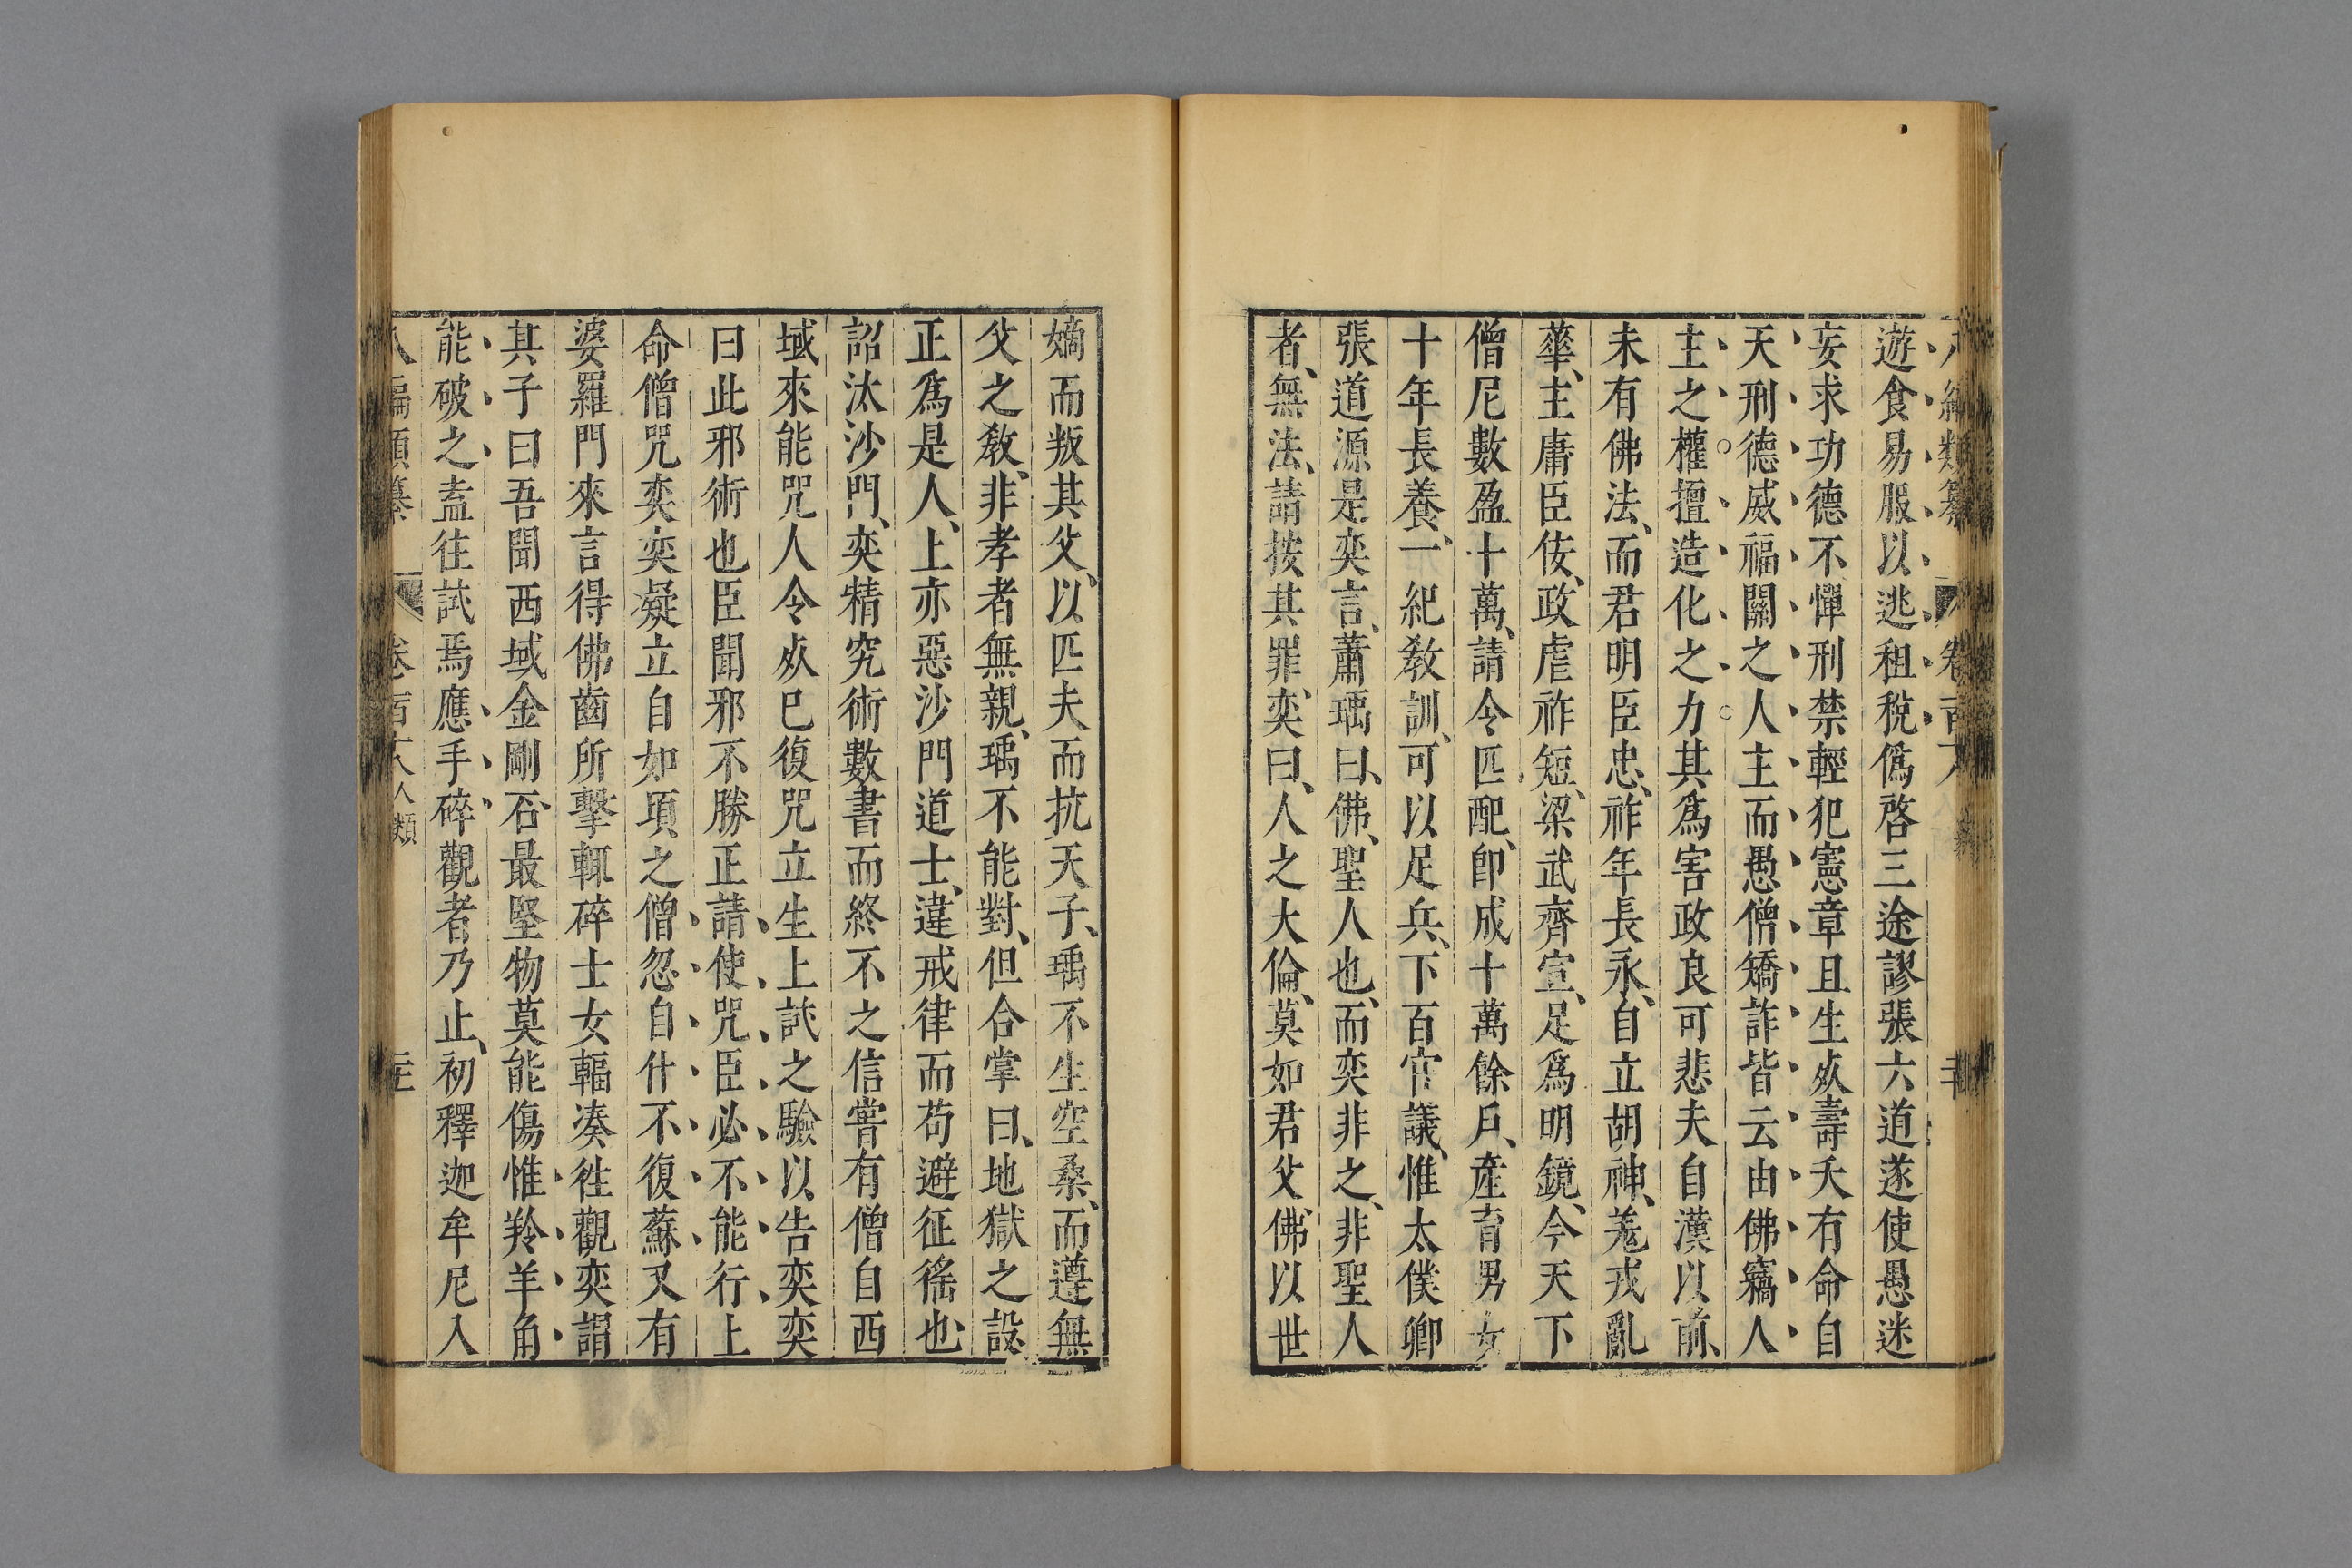 八編類纂 卷百八 二十
遊食易服以逃租稅僞啓三途謬張六道遂使愚迷
妄求功德不憚刑禁輕犯憲章且生㱠壽夭有命自
天刑德威福關之人主而愚僧矯詐皆云由佛竊人
主之權擅造化之力其爲害政良可悲夫自漢以前、
未有佛法、而君明臣忠、祚年長永、自立胡神、羗戎亂
華、主庸臣佞、政虐祚短、梁武齊宣、足爲明鏡、今天下
僧尼數盈十萬、請令匹配、卽成十萬餘戶、產育男女
十年長養、一紀敎訓、可以足兵、下百官議、惟太僕卿
張道源是奕言、蕭瑀曰、佛、聖人也、而奕非之、非聖人
者、無法、請按其罪、奕曰、人之大倫、莫如君父、佛以世
嫡而叛其父、以匹夫而抗天子、瑀不生空桑、而遵無
父之敎、非孝者無親、瑀不能對、但合掌曰、地獄之設
正爲是人、上亦惡沙門道士、違戒律而苟避征徭也、
詔汰沙門、奕精究術數書而終不之信嘗有僧自西
域來能咒人令㱠巳復咒立生上試之驗以告奕奕
曰此邪術也臣聞邪不勝正請使咒臣必不能行上
命僧咒奕奕凝立自如項之僧忽自仆不復蘇又有
婆羅門來言得佛齒所擊輒碎士女輻湊徃觀奕謂
其子曰吾聞西域金剛石最堅物莫能傷惟羚羊角
能破之盍往試焉應手碎觀者乃止、初釋迦牟尼入
八編類纂 卷百八 人類